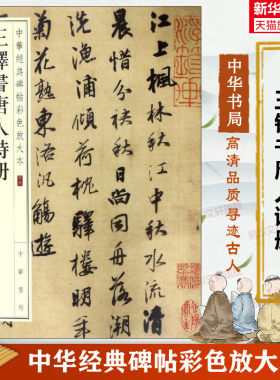 新华书
天猫
王鐸書唐人詩册
中華經典碑帖彩色放大本
中華書局
江上楓林秋江中秋水流清
晨惜分袂秋日尚同舟落潮
洗漁浦傾荷枕驛樓明年
菊花熟東洛汎觴遊
中华书局
高清品质寻迹古人
中华经典碑帖彩色放大